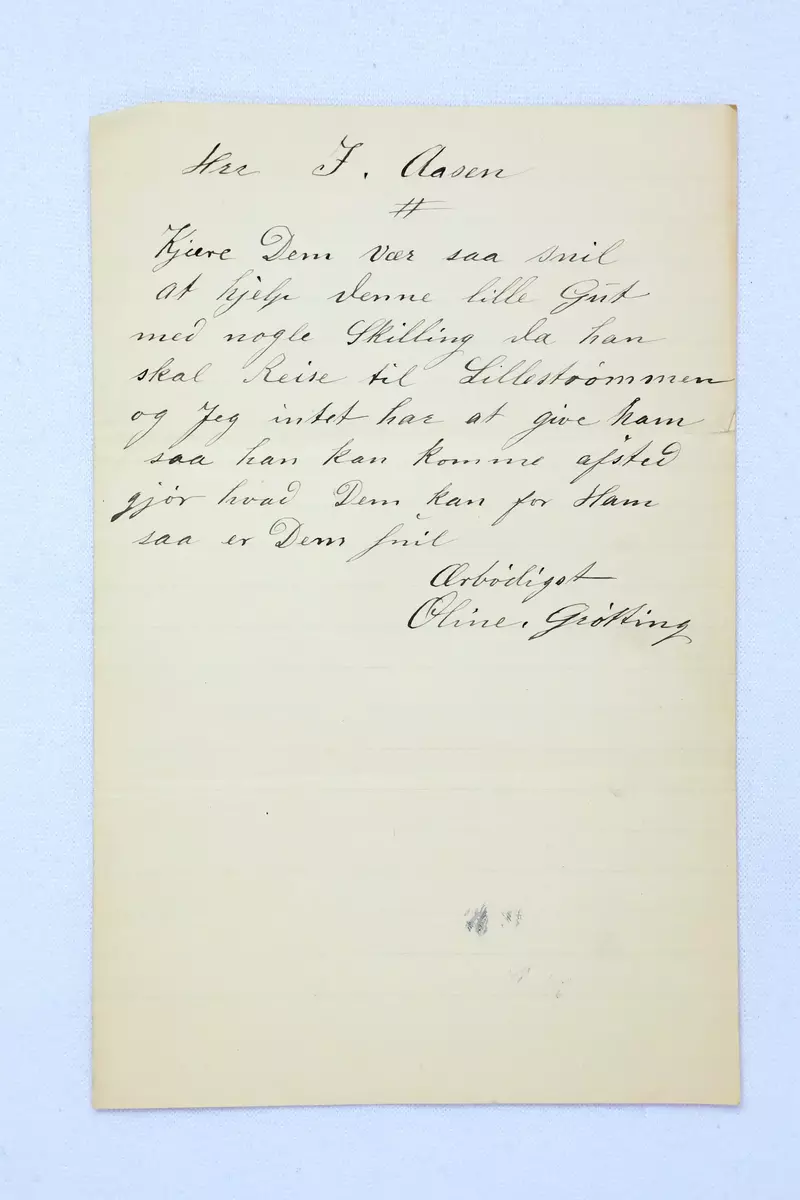 Herr J. Aasen
Kjære Dem vær saa snil
at hjelp denne lille Gut
med nogle Skilling da han
skal Reise til Lillestrømmen
og Jeg intet har at give ham
saa han kan komme afsted
gjør hvad Dem kan for Ham
saa er Dem snil
Ærbødigst
Oline. Grøtting